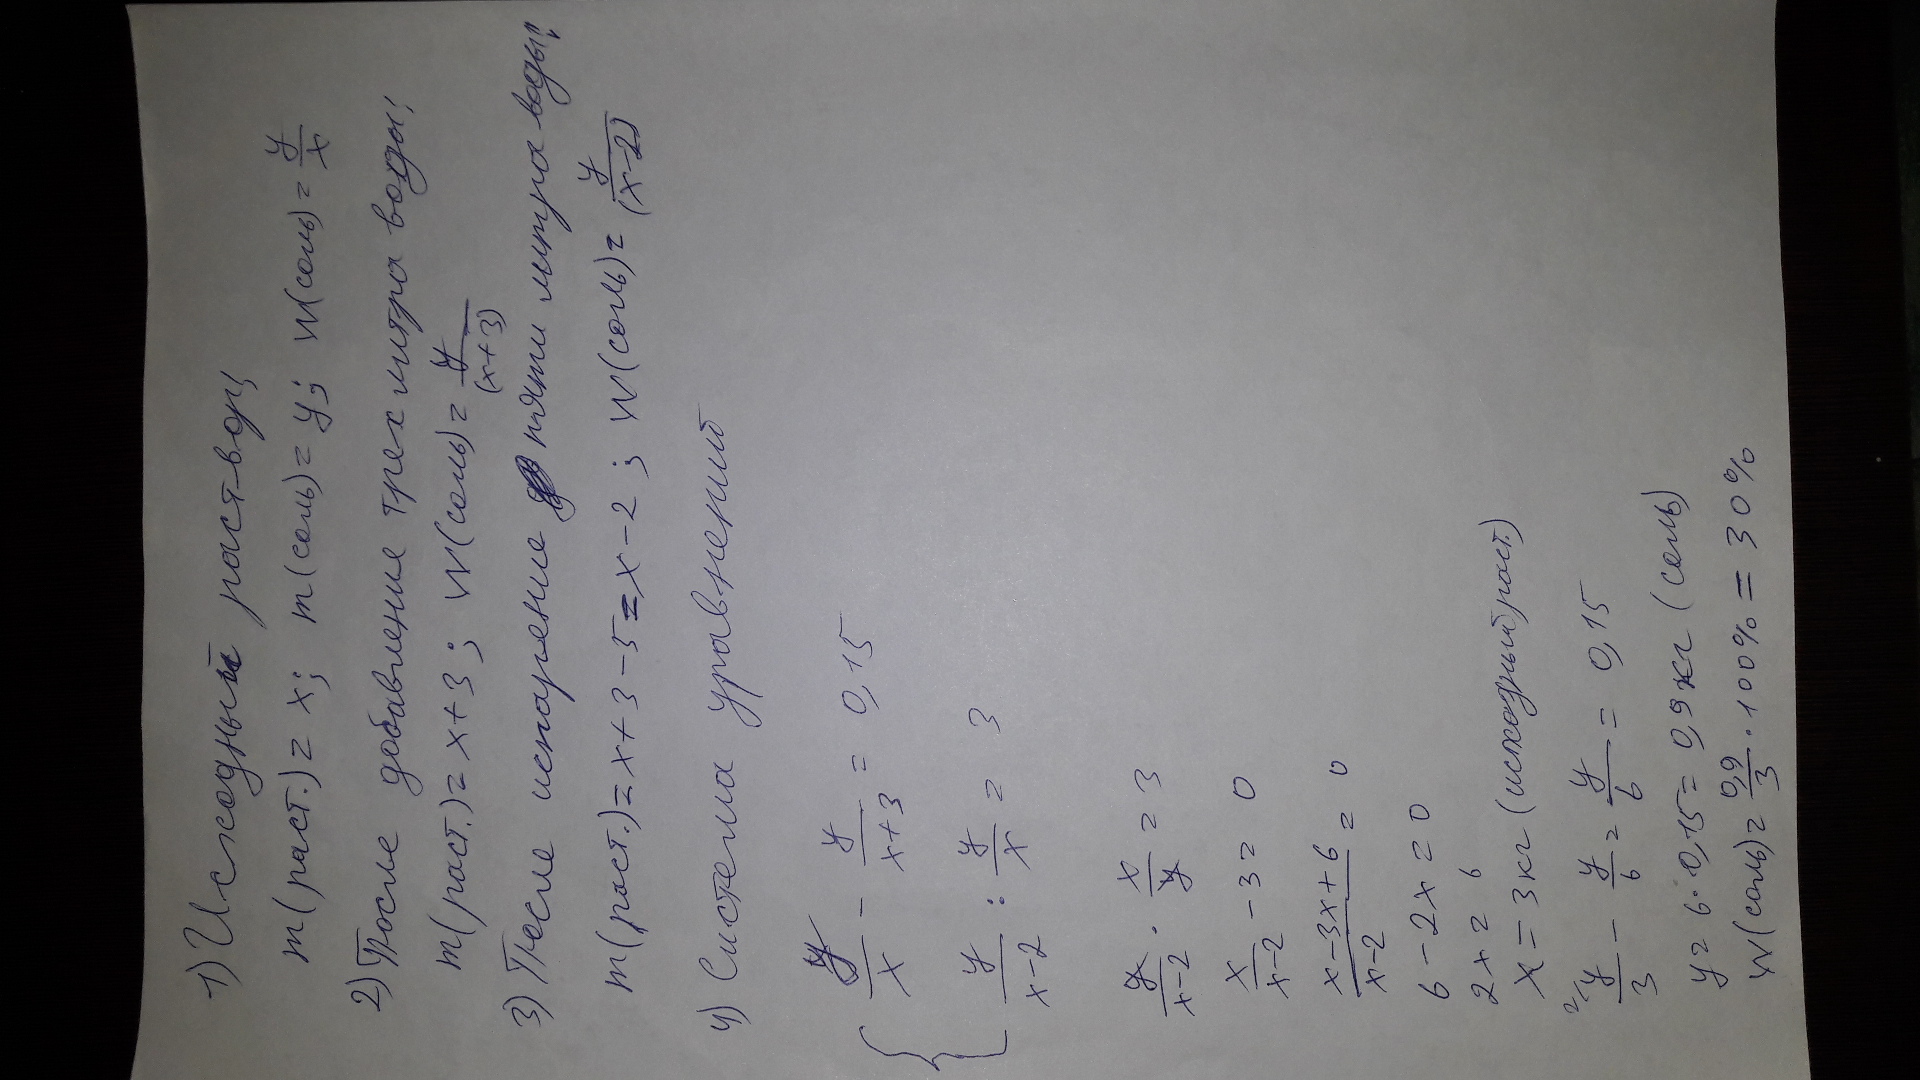 1) Исходный раст-вор;
m(раст.) = x; m(соль) = y; W(соль) = y/x
2) После добавления трех литра воды;
m(раст.) = x+3; W(соль) = y/(x+3)
3) После испарение пяти литра воды;
m(раст.) = x+3-5 = x-2; W(соль) = y/(x-2)
4) Система уравнений
{ y/x - y/x+3 = 0,15
y/x-2 : y/x = 3
y/x-2 · x/y = 3
x/x-2 - 3 = 0
x-3x+6/x-2 = 0
6-2x = 0
2x = 6
x = 3кг (исходный раст.)
2\y/3 - y/6 = y/6 = 0,15
y = 6·0,15 = 0,9кг (соль)
W(соль) = 0,9/3 · 100% = 30%